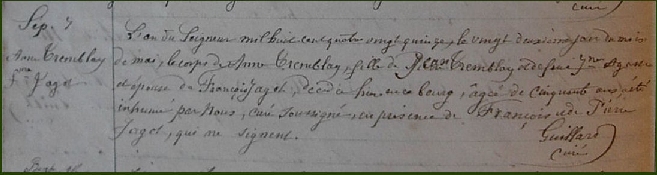 Sep. 7
Anne Tremblay
fme Jagot
L'an du Seigneur mil huit cent quatre vingt quinze, le vingt deuxième jour du mois
de mai, le corps de Anne Tremblay, fille de Jean Tremblay et de feue
et épouse de François Jagot, décédée hier en ce bourg, âgée de cinquante ans, a été
inhumé par Nous, curé soussigné, en présence de François et de Pierre
Jagot, qui ne signent.
Guillard
curé